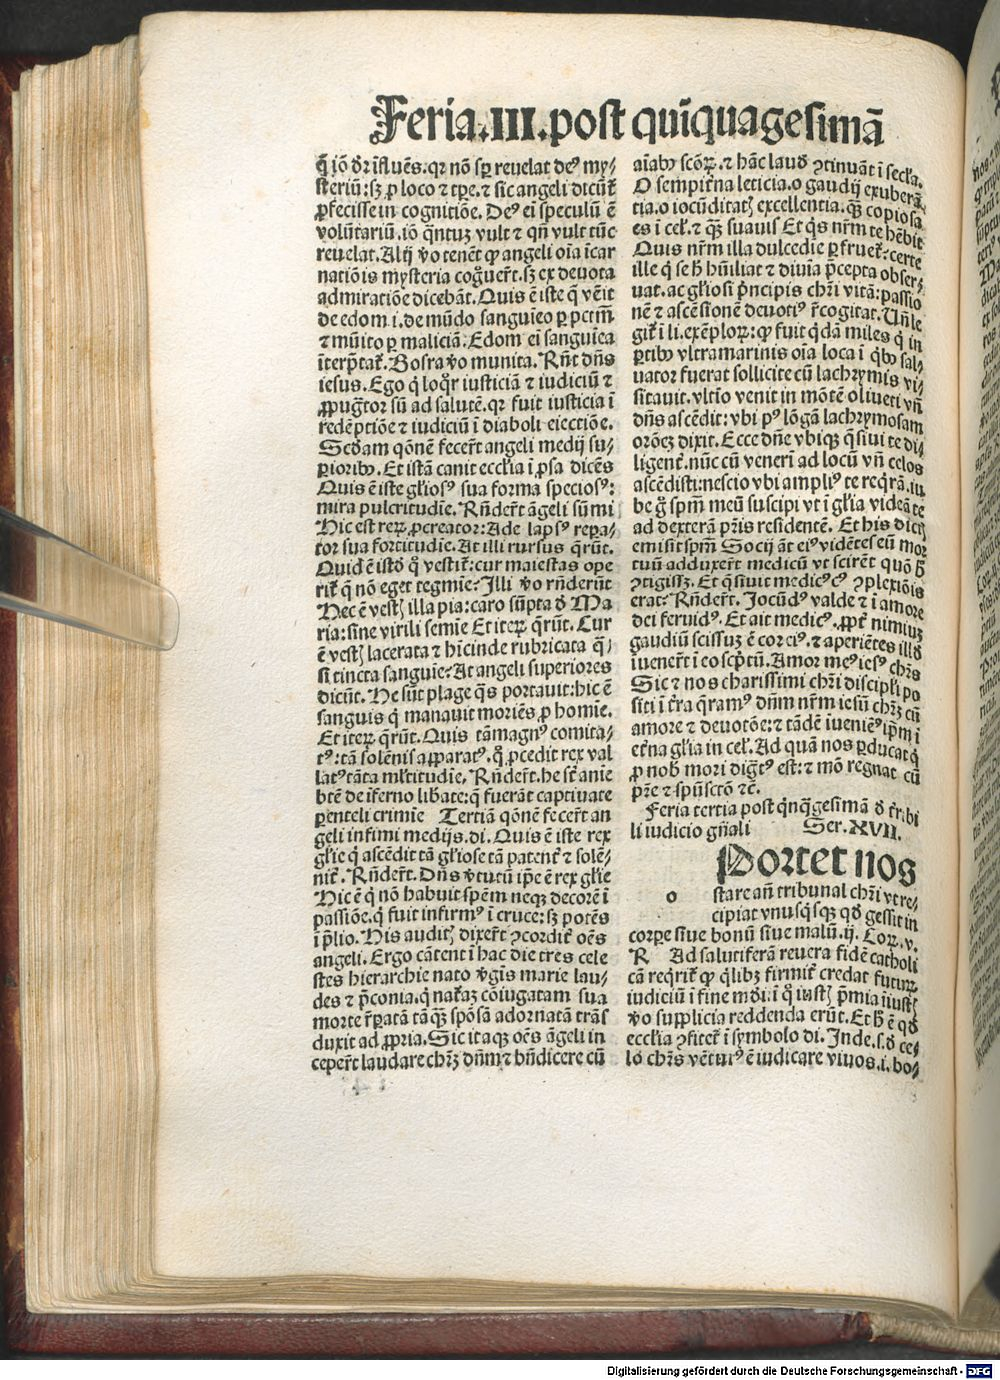 Feria.III.post quīquagesimā
q̄ iō dr̄ īfluēs.qr nō sp̱ reuelat deꝰ my⸗
steriū:sꝫ ꝑ loco ⁊ tp̄e.⁊ sic angeli dicūt̄
ꝓfecisse in cognitiōe. Deꝰ ei speculū ē
volūtariū.iō q̄ntuꝫ vult ⁊ qn̄ vult tūc
reuelat.Alij v̄o tenēt ꝙ angeli oīa īcar
natiōis mysteria cog̊uer̄t.sꝫ ex deuota
admiratiōe dicebāt.Quis ē iste q̄ vēit
de edom.i.de mūdo sanguīeo ꝑ pctm̄
⁊ mūito ꝑ maliciā:Edom ei sanguīea
īterp̄tat̄.Bosra v̄o munita.Rn̄t dn̄s
iesus.Ego q̄ loq̊r iusticiā ⁊ iudiciū ⁊
ꝓpug̊tor sū ad salutē.qr fuit iusticia ī
redēptiōe ⁊ iudiciū ī diaboli eiectiōe.
Scd̄am q̄onē fecer̄t angeli medij su⸗
ꝑioribꝰ.Et istā canit eccl̄ia ī ꝓsa dicēs
Quis ē iste gl̄iosꝰ sua forma speciosꝰ:
mira pulcritudīe.Rn̄der̄t āgeli sū mi
Hic est reꝝ ꝓcreator:Ade lapsꝰ reꝑa⸗
tor sua fortitudīe.At illi rursus q̄rūt.
Quid ē istd̄ q̄ vestit̄:cur maiestas ope
rit̄ q̄ nō eget tegmīe:Illi v̄o rn̄derūt
Hec ē vestꝭ illa pia:caro sūpta d̄ Ma
ria:sine virili semīe Et iteꝝ q̄rūt.Cur
ē vestꝭ lacerata ⁊ hīcinde rubricata q̄⸗
si tincta sanguīe:At angeli superiores
dicūt.He sūt plage q̄s portauit:hic ē
sanguis q̄ manauit moriēs ꝓ homīe.
Et iteꝝ q̄rūt.Quis tāmagnꝰ comita⸗
tꝰ:tā solēnis apparatꝰ.q̊ ꝓcedit rex val
latꝰ tāta ml̄titudīe.Rn̄der̄t.he st̄ anīe
btē de īferno lib̄ate:q̄ fuerāt captiuate
ꝑenteli crimīe Tertiā q̄onē fecer̄t an
geli infimi medijs.di.Quis ē iste rex
gl̄ie q̄ ascēdit tā gl̄iose tā patent̄ ⁊ solē⸗
nit̄.Rn̄der̄t.Dn̄s v̄tutū ip̄e ē rex gl̄ie
Hic ē q̄ nō habuit spēm neqꝫ decorē ī
passiōe.q̄ fuit infirmꝰ ī cruce:sꝫ potēs
ī p̄lio.His auditꝭ dixer̄t ꝯcordit̄ oēs
angeli.Ergo cātent ī hac die tres cele
stes hierarchie nato v̄gīs marie lau⸗
des ⁊ p̄conia.q̄ nat̄aꝫ cōiugatam sua
morte r̄ꝑatā tāq̄ꝫ spōsā adornatā trās
duxit ad ꝓpria.Sic itaqꝫ oēs āgeli in
ceper̄t laudare chr̄ꝫ dn̄m ⁊ bn̄dicere cū
aīabꝰ scōꝝ.⁊ hāc laud̄ ꝯtinuāt ī secl̄a.
O sempit̄na leticia.o gaudij exuberā⸗
tia.o iocūditatꝭ excellentia.q̄ꝫ copiosa
es ī cel̄.⁊ q̄ꝫ suauis Et q̄s nr̄m te hēbit
Quis nr̄m illa dulcedīe ꝑfruet̄:certe
ille q̄ se h̄ hūiliat ⁊ diuīa p̄cepta obser⸗
uat.ac gl̄iosi p̄ncipis chr̄i vitā:passio
nē ⁊ ascēsionē deuotiꝰ r̄cogitat.Un̄ le
git̄ ī li.exēploꝝ:ꝙ fuit q̄dā miles q̄ in
ꝑtibꝰ vltramarinis oīa loca ī q̄bꝰ sal⸗
uator fuerat sollicite cū lachrymis vi⸗
sitauit.vltīo venit in mōtē oliueti vn̄
dn̄s ascēdit:vbi pꝰ lōgā lachrymosam
orōeꝫ dixit.Ecce dn̄e vbiqꝫ q̄siui te di⸗
ligent̄.nūc cū venerī ad locū vn̄ celos
ascēdisti:nescio vbi ampliꝰ te reqr̄ā.iu
be g̊ spm̄ meū suscipi vt ī gl̄ia videā te
ad dexterā pr̄is residentē. Et his dictꝭ
emisit spm̄ Socij āt eiꝰ vidētes eū mor
tuū adduxer̄t medicū vt scirēt quō h̄
ꝯtigissꝫ.Et q̄siuit medicꝰ cꝰ ꝯplexiōis
erat.Rn̄der̄t.Jocūdꝰ valde ⁊ ī amore
dei feruidꝰ.Et ait medicꝰ.ꝓpt̄ nimiuꝫ
gaudiū scissuꝫ ē cor eiꝰ.⁊ aperiētes illd̄
iuener̄t ī eo scp̄tū.Amor meꝰ iesꝰ chr̄s
Sic ⁊ nos charissimi chr̄i discipl̄i po
siti ī t̄ra q̄ramꝰ dn̄m nr̄m iesū chr̄ꝫ cū
amore ⁊ deuotōe:⁊ tādē īueniēꝰ ip̄m ī
et̄na gl̄ia in cel̄.Ad quā nos ꝑducat q̄
ꝓ nob̄ mori dig̊tꝰ est:⁊ mō regnat cū
pr̄e ⁊ spūsctō ⁊c̄.
Feria tertia post q̄nq̄gesimā d̄ t̄ribi
li iudicio gn̄ali Ser.XVII.
o
Portet nos
stare an̄ tribunal chr̄i vt re⸗
cipiat vnusq̄sqꝫ qd̄ gessit in
corpe siue bonū siue malū.ij.Coꝝ.v.
R Ad salutiferā reuera fidē catholi
cā reqrit̄ ꝙ q̄libꝫ firmit̄ credat futuꝝ
iudiciū ī fine mūdi:ī q̊ iustꝭ p̄mia īiustꝭ
v̄o supplicia reddenda erūt.Et h̄ ē qd̄
eccl̄ia ꝯfitet̄ ī symbolo di.Inde.s.d̄ ce⸗
lo chr̄s vēturꝰ ē iudicare viuos.i.bo⸗
Digitalisierung gefördert durch die Deutsche Forschungsgemeinschaft - DFG